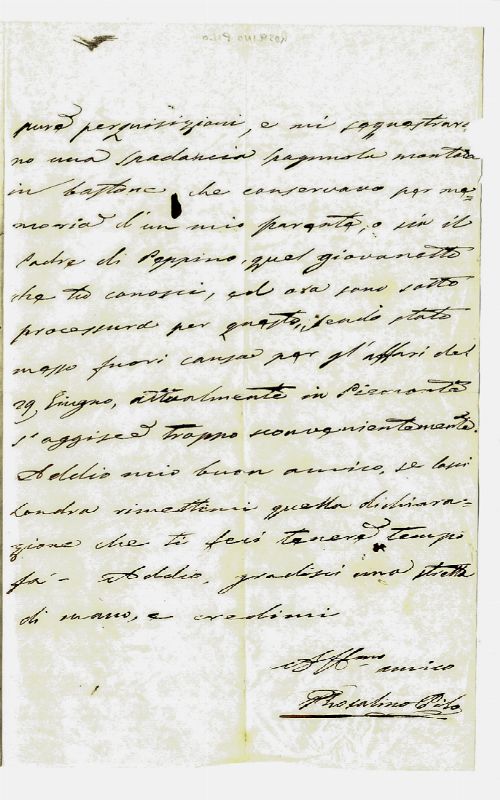 pure perquisizioni, e mi sequestraro=
no una spadancia spagnuola montata
in bastone che conservavo per me=
moria d'un mio parente, o sia il
Padre di Peppino, quel giovanotto
che tu conosci, ed ora sono sotto
processura per questo, sendo stato
messo fuori causa per gl'affari del
29 Giugno, attualmente in Piemonte
s'aggisce troppo sconvenientemente.
Addio mio buon amico, se lasci
Londra rimettimi quella dichiara=
zione che ti feci tenere tempo
fà - Addio, gradisci una stretta
di mano, e credimi
Aff.mo amico
Rosalino Pilo